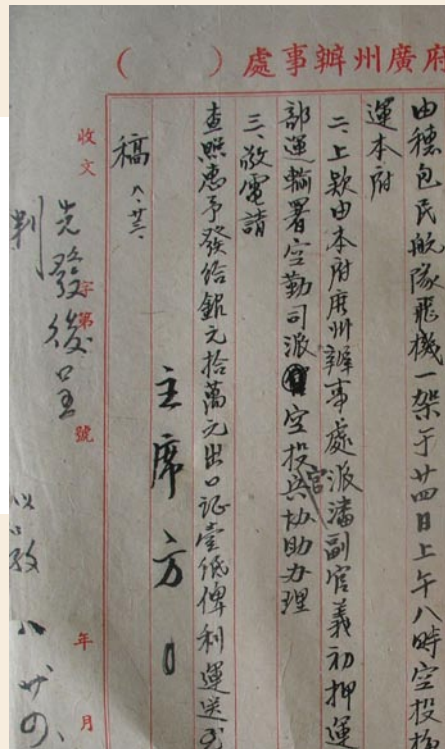 府廣州辦事處（　　）
由穗包民航隊飛機一架于廿四日上午八時空投
運本府
二、上款由本府廣州辦事處派潘副官義初押運
部運輸署空勤司派空投兵官協助办理
三、敬電請
查照惠予發給銀元拾萬元出口証壹紙俾利運送
主席方
稿 八、廿三、
收文　字第　號　年　月
先發後呈
判
八